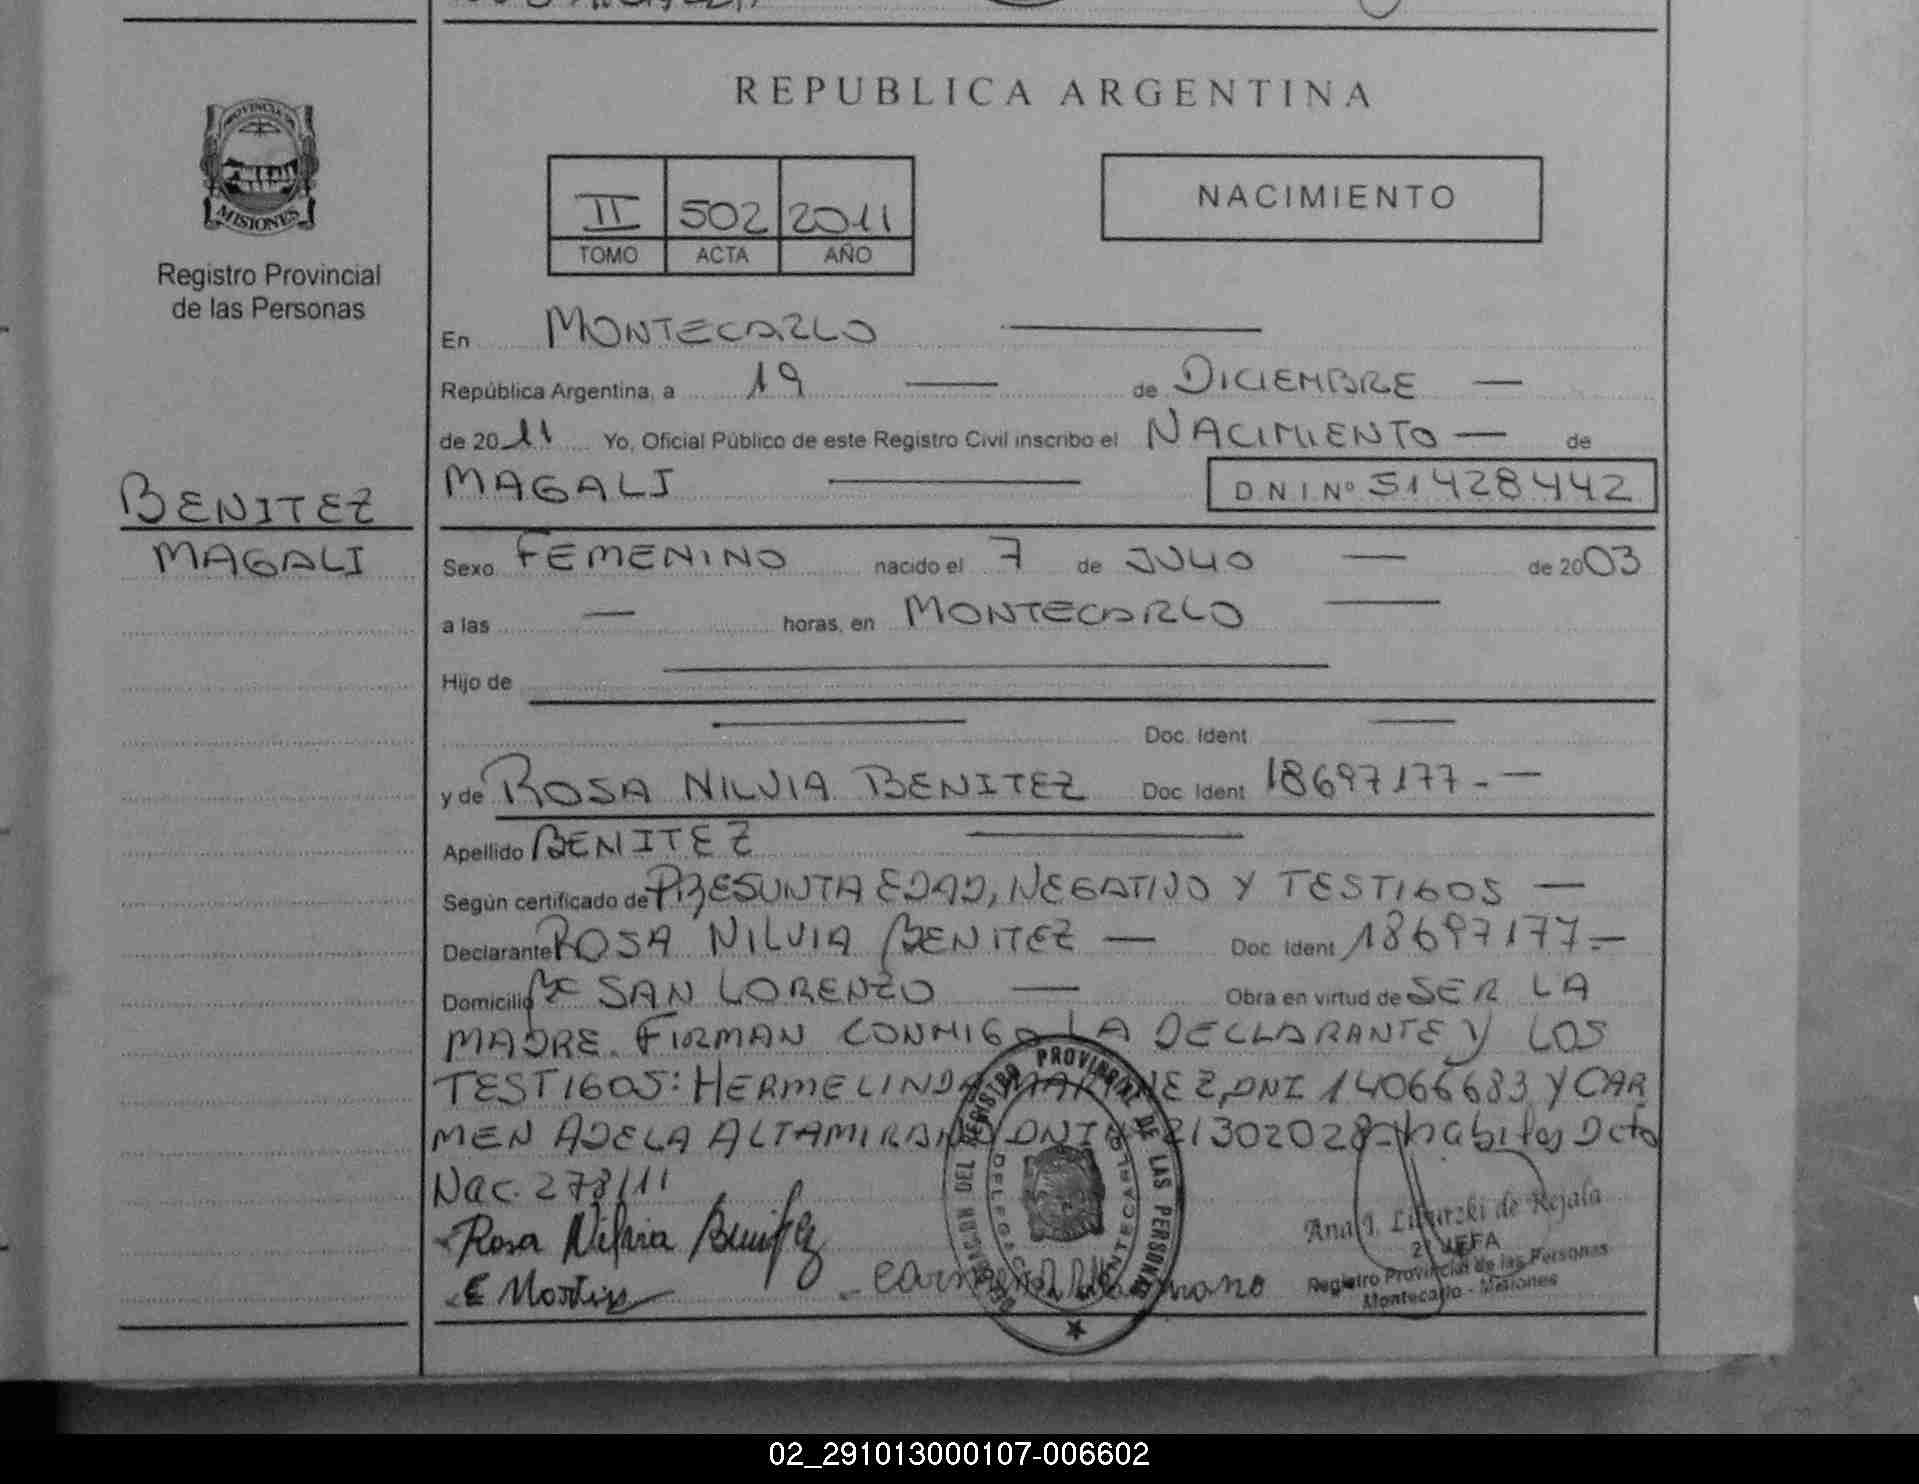 REPUBLICA ARGENTINA
PROVINCIA DE
MISIONES
Registro Provincial
de las Personas
II 502 2011
TOMO ACTA AÑO
NACIMIENTO
En MONTECARLO
República Argentina, a 19 de DICIEMBRE
de 2011 Yo, Oficial Público de este Registro Civil inscribo el NACIMIENTO de
BENITEZ
MAGALI
MAGALI D N I Nº 51428442
Sexo FEMENINO nacido el 7 de JULIO de 2003
a las horas, en MONTECARLO
Hijo de
Doc. Ident
y de ROSA NILVIA BENITEZ Doc Ident 18697177.-
Apellido BENITEZ
Según certificado de PRESUNTA EDAD, NEGATIVO Y TESTIGOS
Declarante ROSA NILVIA BENITEZ Doc Ident 18697177.-
Domicilio Bº SAN LORENZO Obra en virtud de SER LA
MADRE. FIRMAN CONMIGO LA DECLARANTE Y LOS
TESTIGOS: HERMELINDA MARTINEZ, DNI 14066683 Y CAR
MEN ADELA ALTAMIRANO DNI Nº 21302028
Nac. 278/11
Rosa Nilvia Benitez
Carmen Altamirano
DIRECCION DEL REGISTRO PROVINCIAL DE LAS PERSONAS
MONTECARLO
Ana de Rejala
2ª JEFA
Registro Provincial de las Personas
Montecarlo - Misiones
02_291013000107-006602